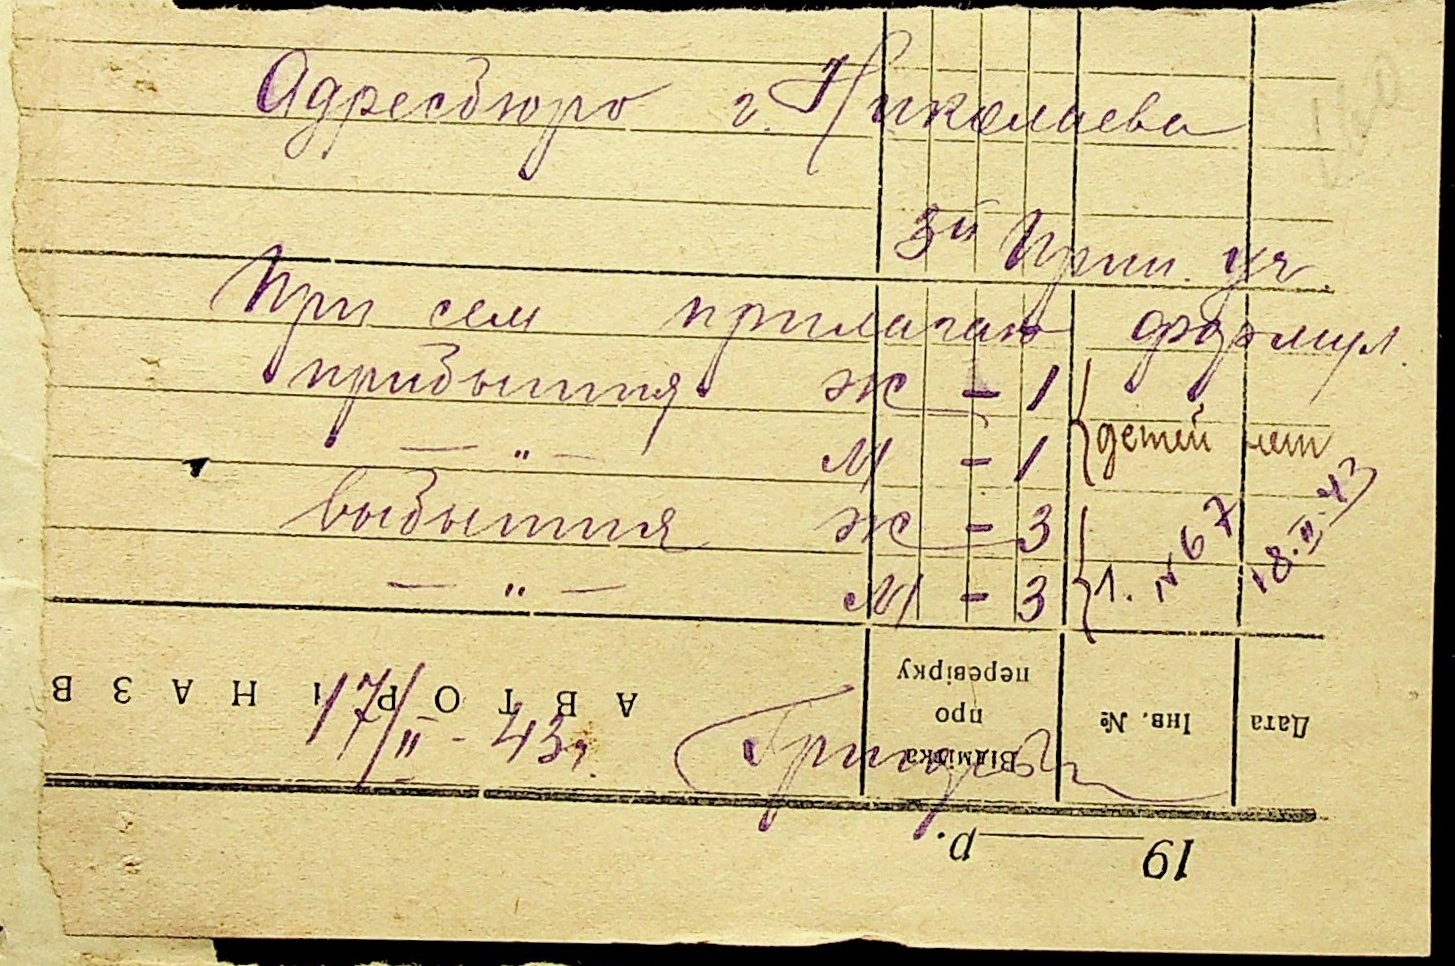 Адресбюро г. Николаева
3й Прим. уч.
При сем прилагаю формул.
прибытия ж - 1
—„— м - 1
{ детей нет
выбытия ж - 3
—„— м - 3
{ 1. № 67 18.II.43
17/II - 43 г.
АВТОР і НАЗВ
Відмітка про перевірку
Інв. №
Дата
19 р.